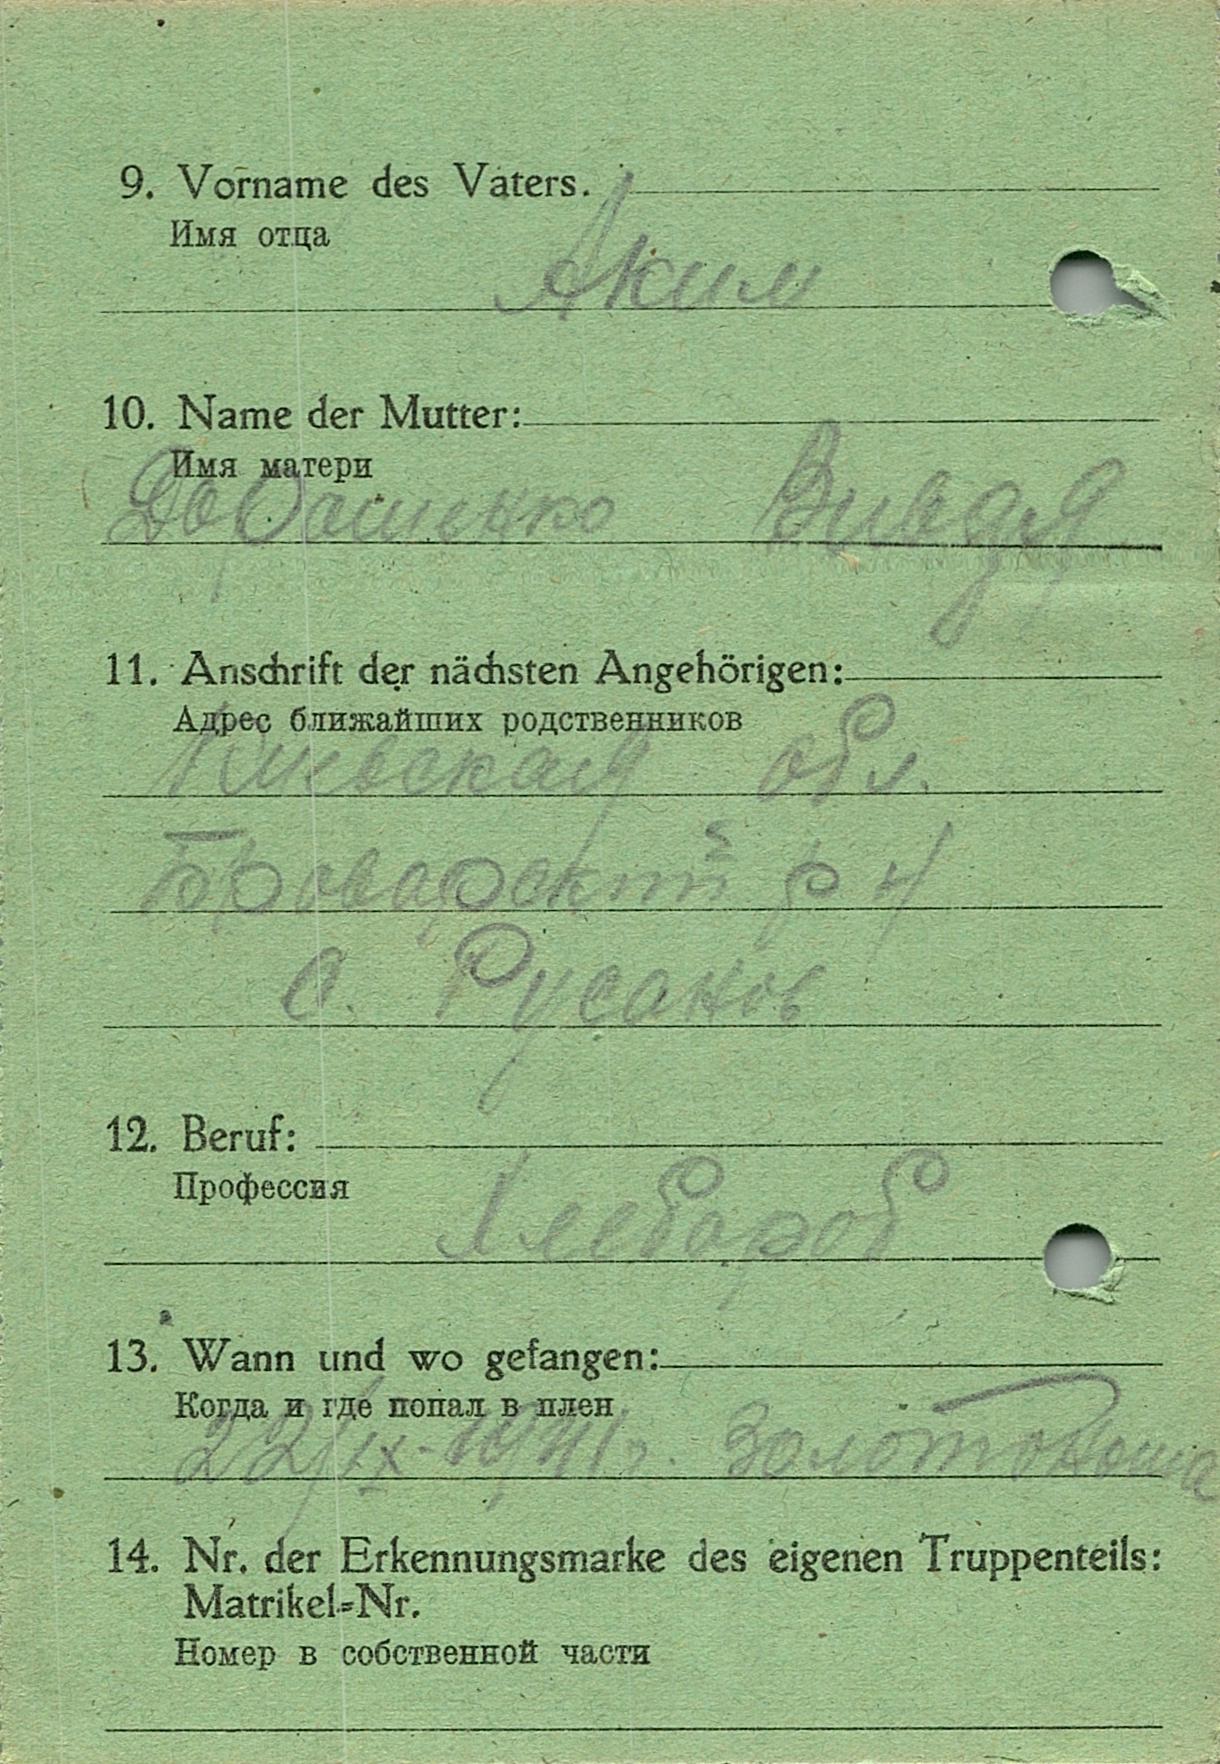 9. Vorname des Vaters.
Имя отца
Аким
10. Name der Mutter:
Имя матери
11. Anschrift der nächsten Angehörigen:
Адрес ближайших родственников
Киевская обл.
Броварский р-н
с. Русанов
12. Beruf:
Профессия
Хлебороб
13. Wann und wo gefangen:
Когда и где попал в плен
22/IX-1941г. Золотоноша
14. Nr. der Erkennungsmarke des eigenen Truppenteils:
Matrikel-Nr.
Номер в собственной части